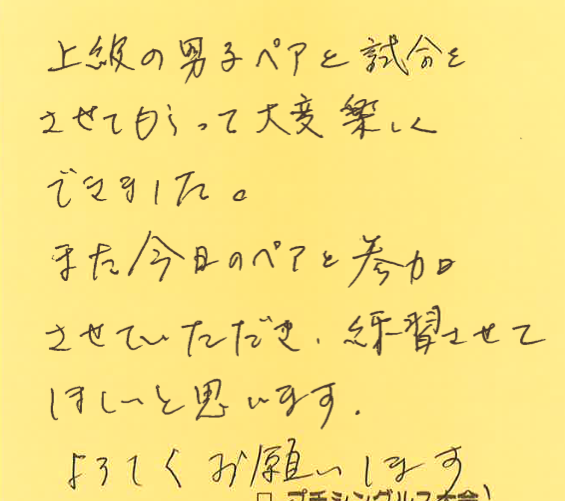 上級の男子ペアと試合を
させてもらって大変楽しく
できました。
また今日のペアと参加
させていただき、練習させて
ほしいと思います.
よろしくお願いします
□ プチシングルス大会)